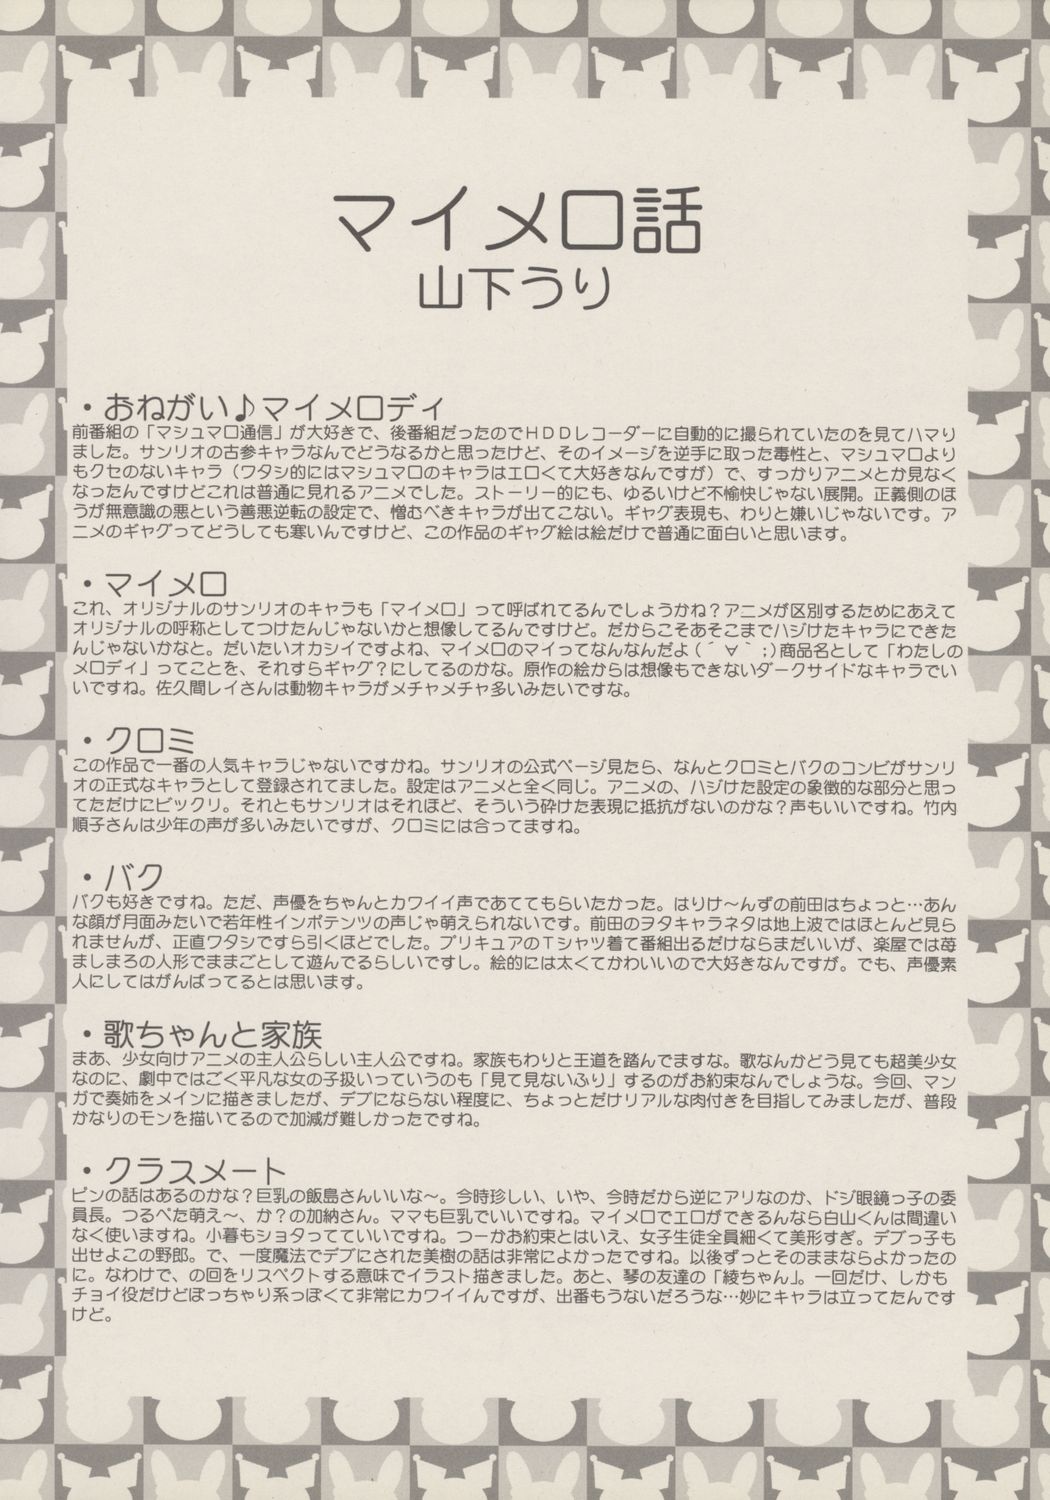 マイメロ話
山下うり
・おねがい♪マイメロディ
前番組の「マシュマロ通信」が大好きで、後番組だったのでＨＤＤレコーダーに自動的に撮られていたのを見てハマり
ました。サンリオの古参キャラなんでどうなるかと思ったけど、そのイメージを逆手に取った毒性と、マシュマロより
もクセのないキャラ（ワタシ的にはマシュマロのキャラはエロくて大好きなんですが）で、すっかりアニメとか見なく
なったんですけどこれは普通に見れるアニメでした。ストーリー的にも、ゆるいけど不愉快じゃない展開。正義側のほ
うが無意識の悪という善悪逆転の設定で、憎むべきキャラが出てこない。ギャグ表現も、わりと嫌いじゃないです。ア
ニメのギャグってどうしても寒いんですけど、この作品のギャグ絵は絵だけで普通に面白いと思います。
・マイメロ
これ、オリジナルのサンリオのキャラも「マイメロ」って呼ばれてるんでしょうかね？アニメが区別するためにあえて
オリジナルの呼称としてつけたんじゃないかと想像してるんですけど。だからこそあそこまでハジけたキャラにできた
んじゃないかなと。だいたいオカシイですよね、マイメロのマイってなんなんだよ（´∀｀；）商品名として「わたしの
メロディ」ってことを、それすらギャグ？にしてるのかな。原作の絵からは想像もできないダークサイドなキャラでい
いですね。佐久間レイさんは動物キャラがメチャメチャ多いみたいですな。
・クロミ
この作品で一番の人気キャラじゃないですかね。サンリオの公式ページ見たら、なんとクロミとバクのコンビがサンリ
オの正式なキャラとして登録されてました。設定はアニメと全く同じ。アニメの、ハジけた設定の象徴的な部分と思っ
てただけにビックリ。それともサンリオはそれほど、そういう砕けた表現に抵抗がないのかな？声もいいですね。竹内
順子さんは少年の声が多いみたいですが、クロミには合ってますね。
・バク
バクも好きですね。ただ、声優をちゃんとカワイイ声であててもらいたかった。はりけ～んずの前田はちょっと…あん
な顔が月面みたいで若年性インポテンツの声じゃ萌えられないです。前田のヲタキャラネタは地上波ではほとんど見ら
れませんが、正直ワタシですら引くほどでした。プリキュアのＴシャツ着て番組出るだけならまだいいが、楽屋では苺
ましまろの人形でままごとして遊んでるらしいですし。絵的には太くてかわいいので大好きなんですが。でも、声優素
人にしてはがんばってるとは思います。
・歌ちゃんと家族
まあ、少女向けアニメの主人公らしい主人公ですね。家族もわりと王道を踏んでますな。歌なんかどう見ても超美少女
なのに、劇中ではごく平凡な女の子扱いっていうのも「見て見ないふり」するのがお約束なんでしょうな。今回、マン
ガで奏姉をメインに描きましたが、デブにならない程度に、ちょっとだけリアルな肉付きを目指してみましたが、普段
かなりのモンを描いてるので加減が難しかったですね。
・クラスメート
ピンの話はあるのかな？巨乳の飯島さんいいな～。今時珍しい、いや、今時だから逆にアリなのか、ドジ眼鏡っ子の委
員長。つるぺた萌え～、か？の加納さん。ママも巨乳でいいですね。マイメロでエロができるんなら白山くんは間違い
なく使いますね。小暮もショタってていいですね。つーかお約束とはいえ、女子生徒全員細くて美形すぎ。デブっ子も
出せよこの野郎。で、一度魔法でデブにされた美樹の話は非常によかったですね。以後ずっとそのままならよかったの
に。なわけで、の回をリスペクトする意味でイラスト描きました。あと、琴の友達の「綾ちゃん」。一回だけ、しかも
チョイ役だけどぽっちゃり系っぽくて非常にカワイイんですが、出番もうないだろうな…妙にキャラは立ってたんです
けど。